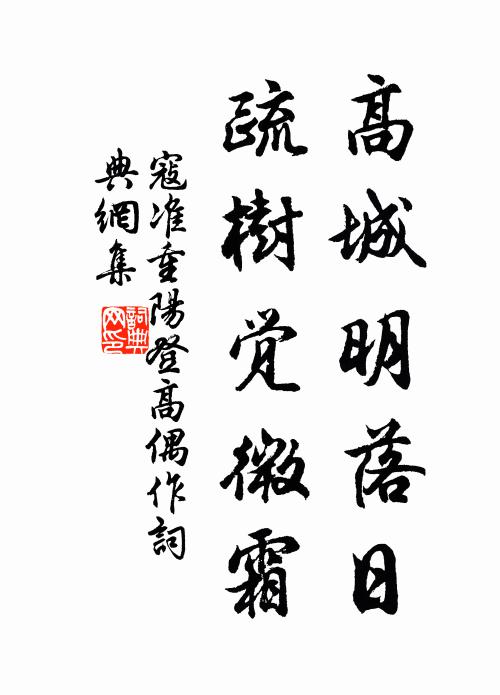 高城明落日
疏樹覚微霜
寇准重陽登高偶作詞
典網集
詞典
网印